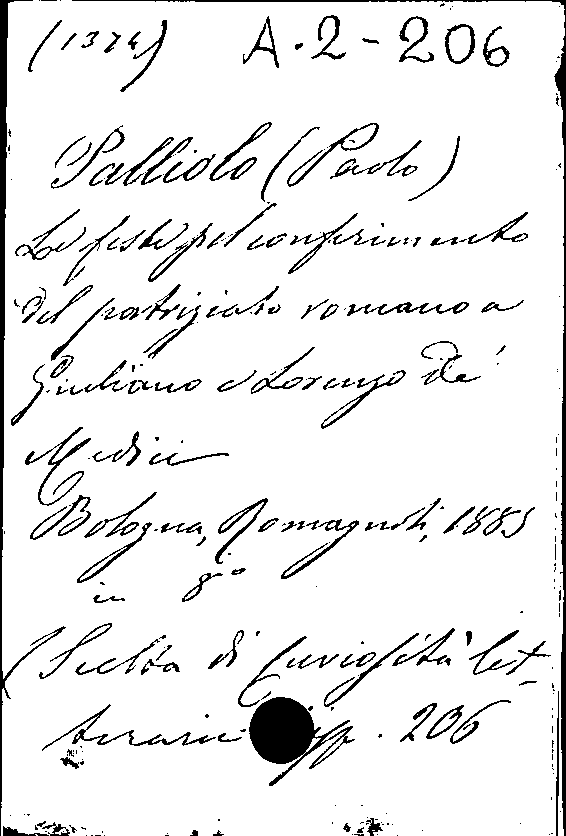 (1374) A·2-206
Palliolo (Paolo)
Le feste pel conferimento
del patriziato romano a
Giuliano e Lorenzo De'
Medici
Bologna, Romagnoli, 1885
in 8vo
(Scelta di Curiosità let-
terarie . 206